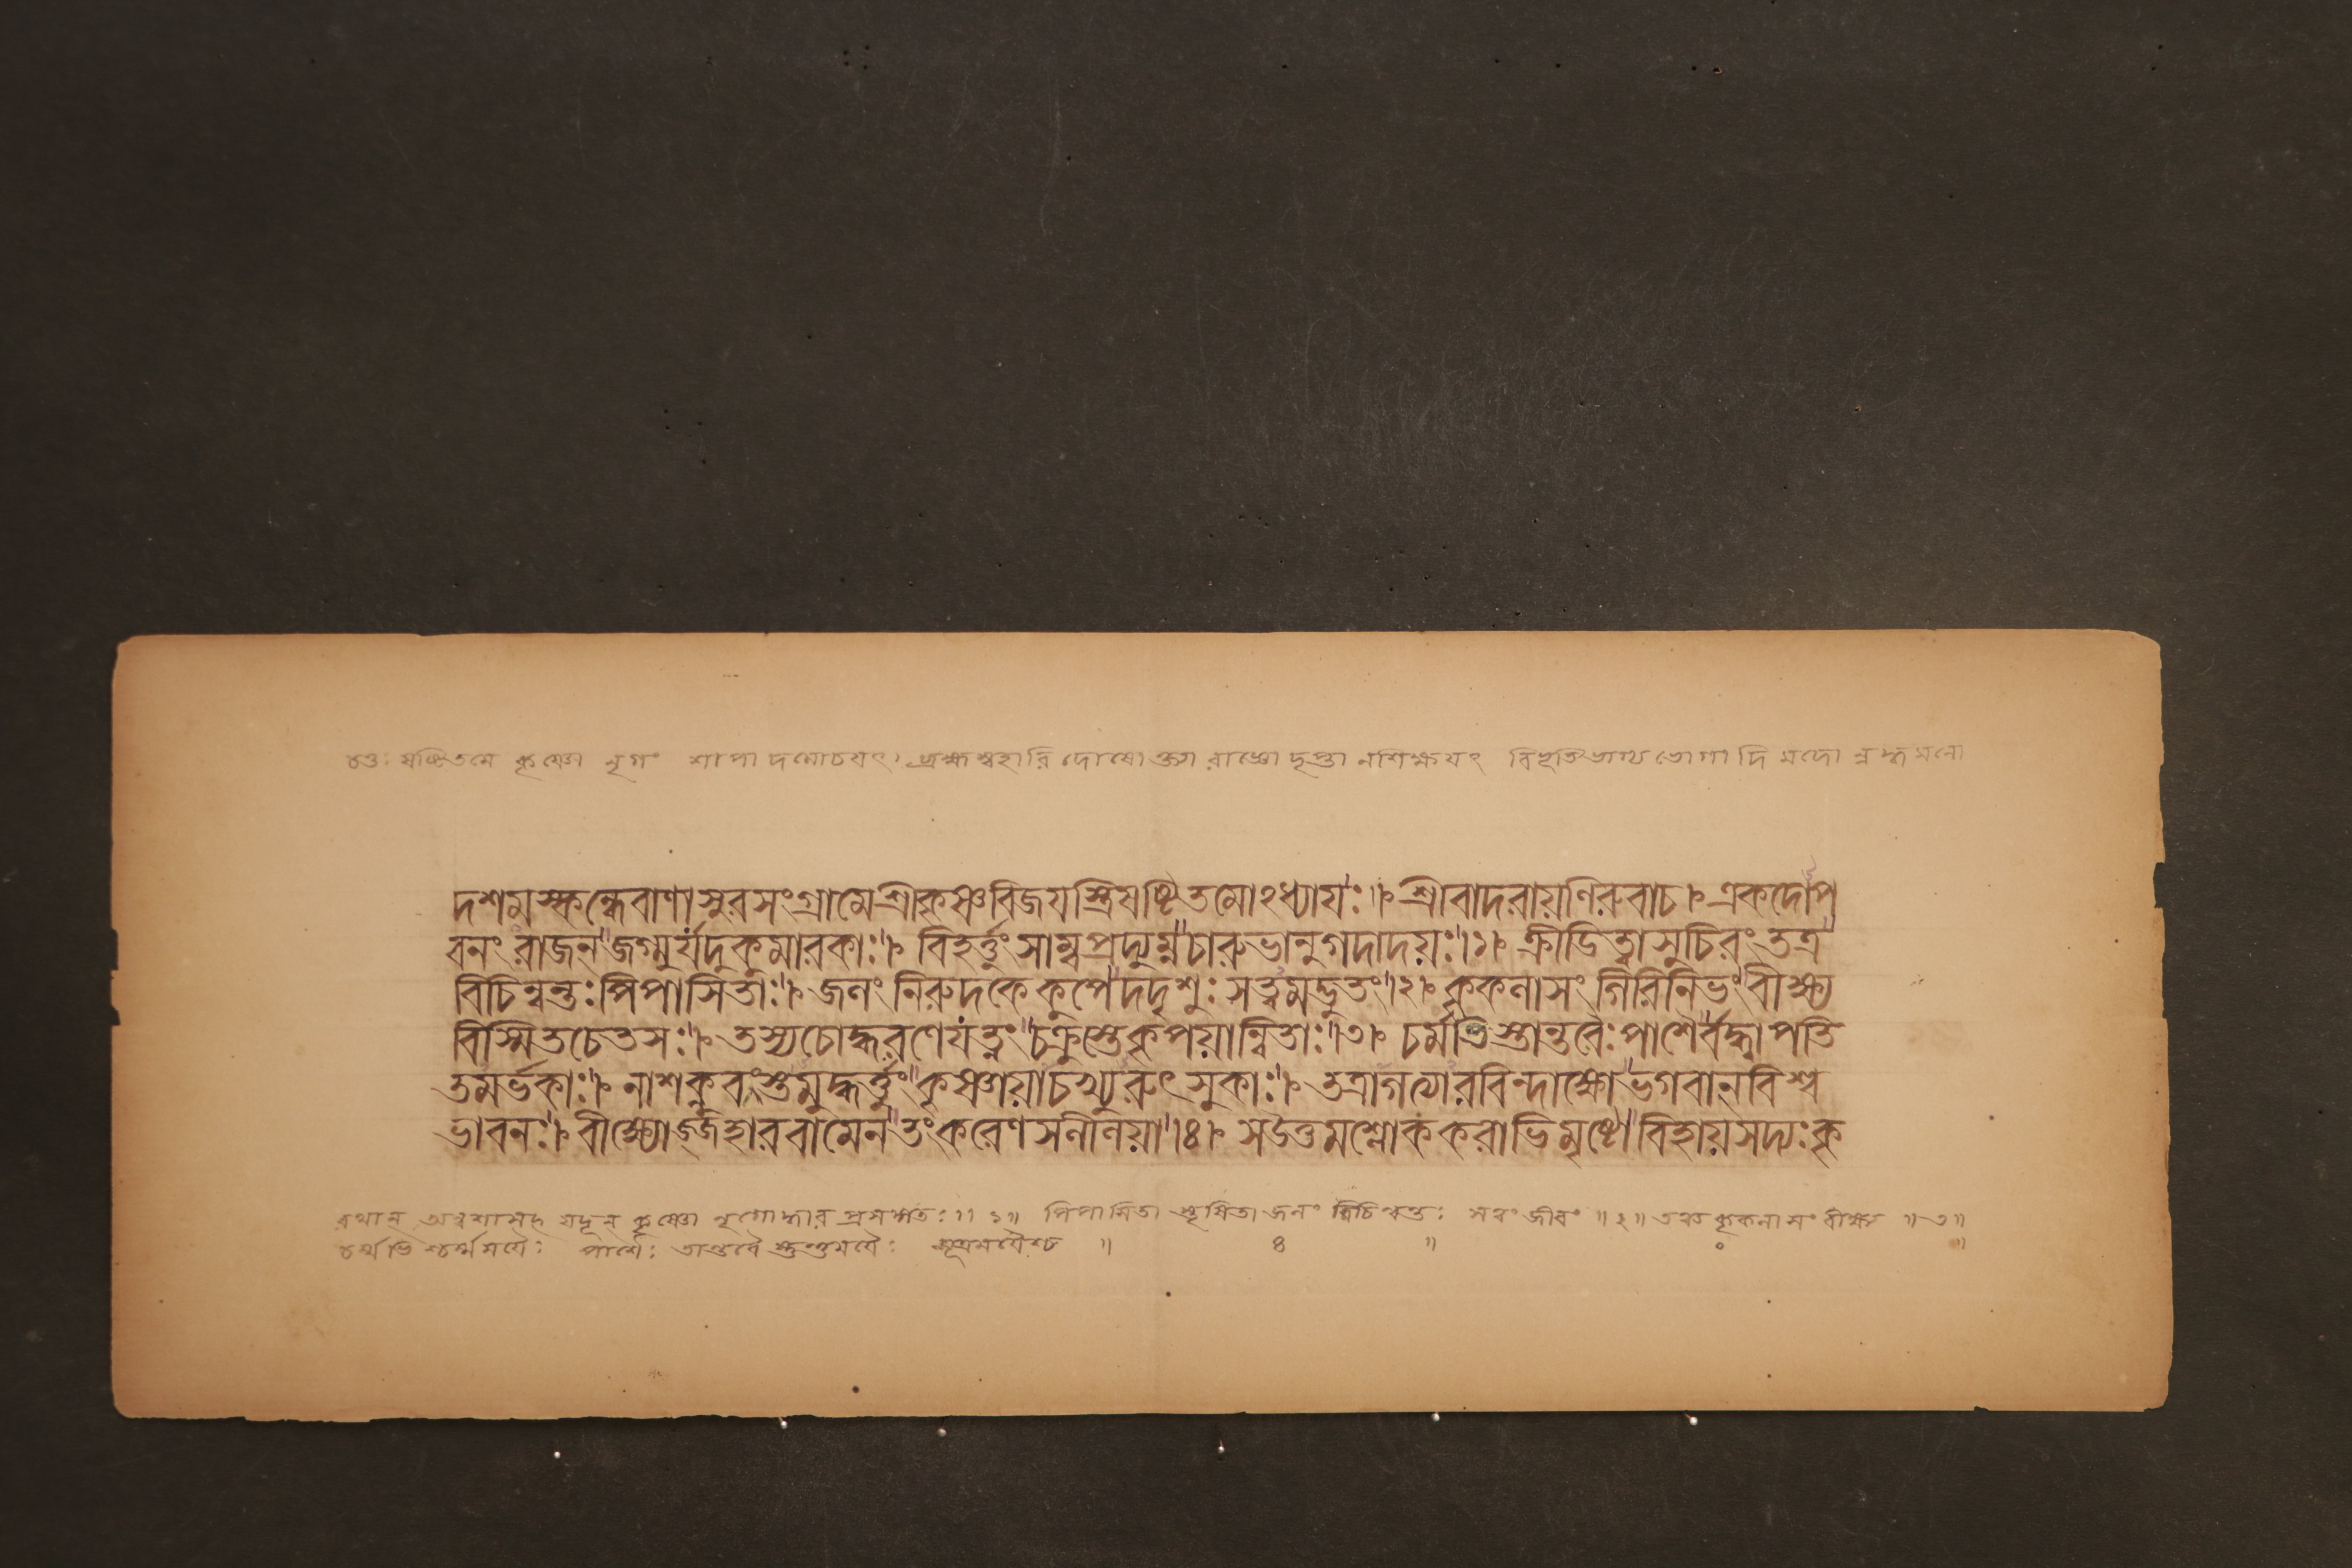 চতুঃষষ্টিতমে কৃষ্ণো নৃগং শাপাদমোচয়ৎ। ব্রহ্মস্বহারিদোষোক্ত্যা রাজ্ঞো দৃপ্তানশিক্ষয়ৎ বিভূতি ভোগাদি মদোন্নদ্ধমনো
দশমস্কন্ধেবাণাসুরসংগ্রামেশ্রীকৃষ্ণবিজয়স্ত্রিষষ্টিতমোঽধ্যায়ঃ॥ শ্রীবাদরায়ণিরুবাচ। একদোপ
বনং রাজন্ জগ্মুর্যদুকুমারকাঃ। বিহর্ত্তুংসাম্বপ্রদ্যুম্নচারুভানুগদাদয়ঃ।১। ক্রীডিত্বাসুচিরং তত্র
বিচিন্বন্তঃপিপাসিতাঃ। জলং নিরুদকেকুপেদদৃশুঃ সত্ত্বমদ্ভুতং।২। কৃকলাসং গিরিনিভংবীক্ষ্য
বিস্মিতচেতসঃ। তস্যচোদ্ধরণেযত্নং চক্রুস্তেকৃপয়ান্বিতাঃ।৩। চর্মজৈস্তান্তবৈঃপাশৈর্বদ্ধ্বাপতি
তমর্ভকাঃ। নাশক্নুবংস্তমুদ্ধর্ত্তুং কৃষ্ণায়াচখ্যুরুৎসুকাঃ। তত্রাগত্যারবিন্দাক্ষোভগবান্ বিশ্ব
ভাবনঃ। বীক্ষ্যোজ্জহারবামেন তংকরেণসলীলয়া।৪। সউত্তমশ্লোককরাভিমৃষ্টোবিহায়সদ্যঃকৃ
রথান্ অন্বশাসৎ যদূন্ কৃষ্ণো নৃগোদ্ধার প্রসঙ্গতঃ॥ ১॥ পিপাসিতা স্তৃষিতা জলং বিচিন্বন্তঃ সত্ত্বং জীবং ॥২॥ কৃকলাসং বীক্ষ্য ॥৩॥
পাশৈঃ তান্তবৈ স্তন্তুময়ৈঃ সূত্রময়ৈশ্চ ॥ ৪ ॥ ॥